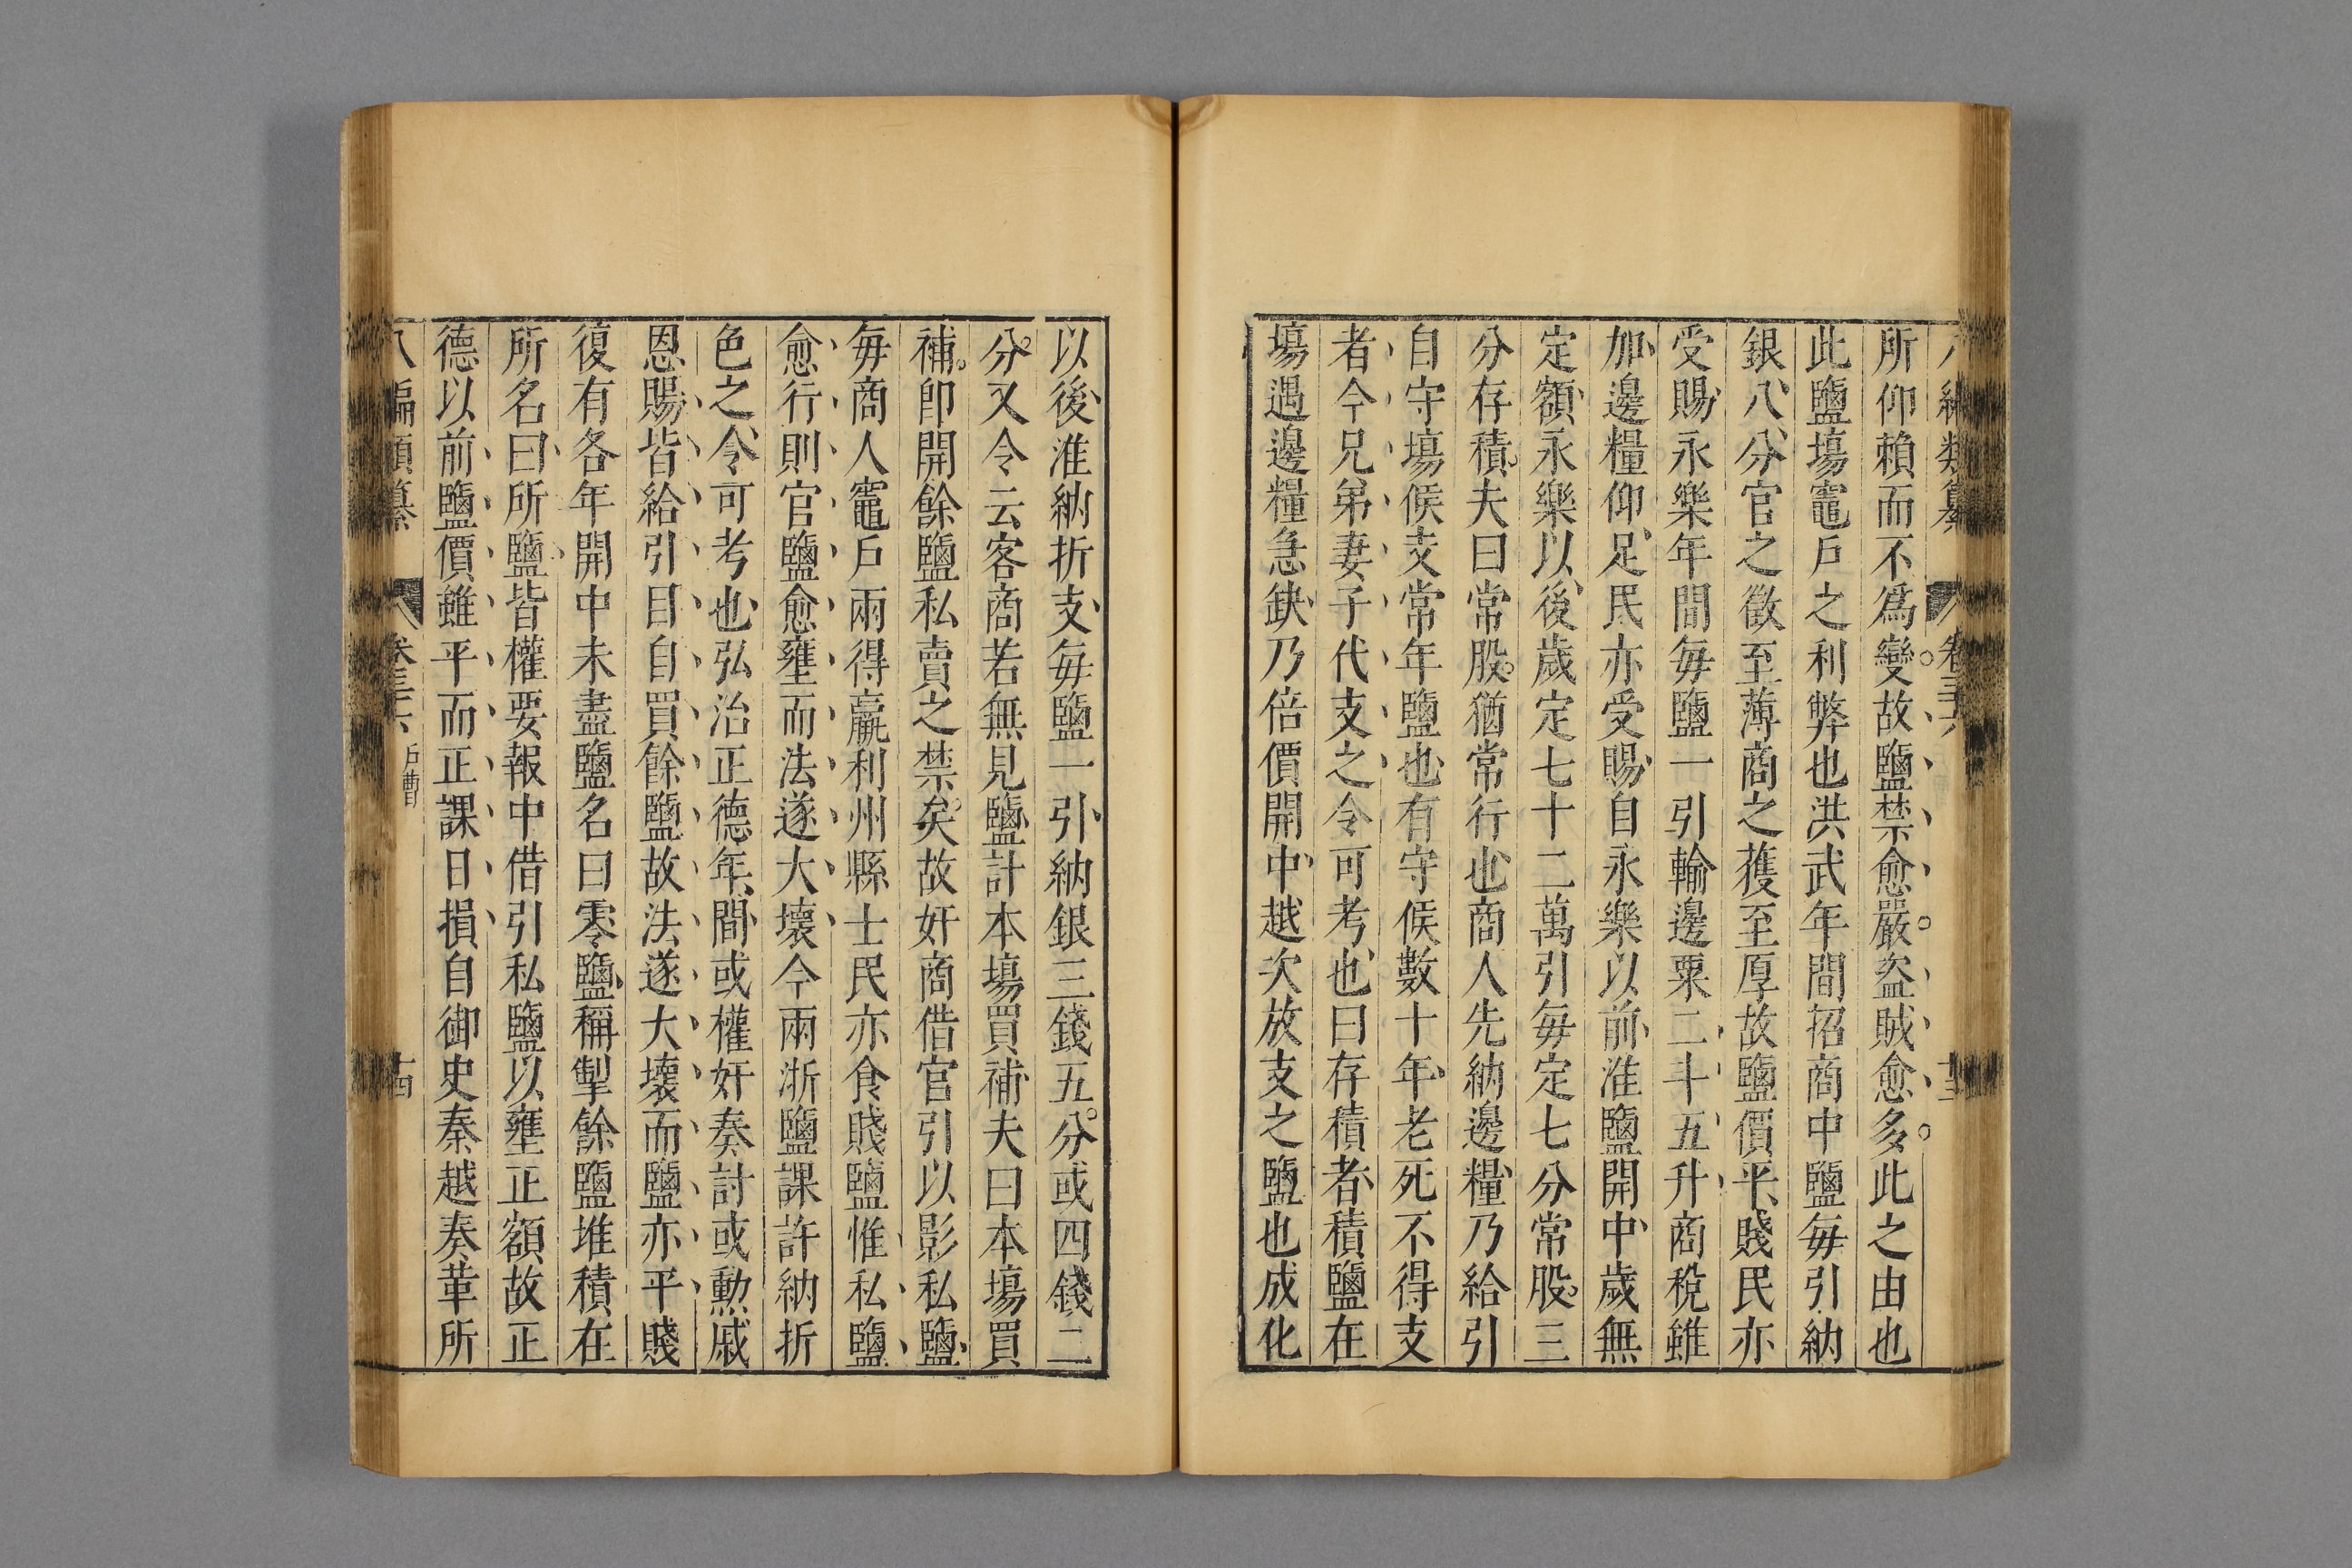 八編類纂 卷三十六 十三
所仰賴而不爲變故鹽禁愈嚴盜賊愈多此之由也
此鹽塲竈戶之利弊也洪武年間招商中鹽每引納
銀八分官之徵至薄商之獲至厚故鹽價平賤民亦
受賜永樂年間每鹽一引輸邊粟二斗五升商稅雖
加邊糧仰足民亦受賜自永樂以前淮鹽開中歲無
定額永樂以後歲定七十二萬引每定七分常股三
分存積夫曰常股猶常行也商人先納邊糧乃給引
自守塲候支常年鹽也有守候數十年老死不得支
者令兄弟妻子代支之令可考也曰存積者積鹽在
塲遇邊糧急缺乃倍價開中越次放支之鹽也成化
以後淮納折支每鹽一引納銀三錢五分或四錢二
分又令云客商若無見鹽計本塲買補夫曰本塲買
補卽開餘鹽私賣之禁矣故奸商借官引以影私鹽
每商人竈戶兩得贏利州縣士民亦食賤鹽惟私鹽
愈行則官鹽愈壅而法遂大壞今兩浙鹽課許納折
色之令可考也弘治正德年間或權奸奏討或勳戚
恩賜皆給引目自買餘鹽故法遂大壞而鹽亦平賤
復有各年開中未盡鹽名曰零鹽稱掣餘鹽堆積在
所名曰所鹽皆權要報中借引私鹽以壅正額故正
德以前鹽價雖平而正課日損自御史秦越奏革所
八編類纂 卷三十六 戶曹 十四